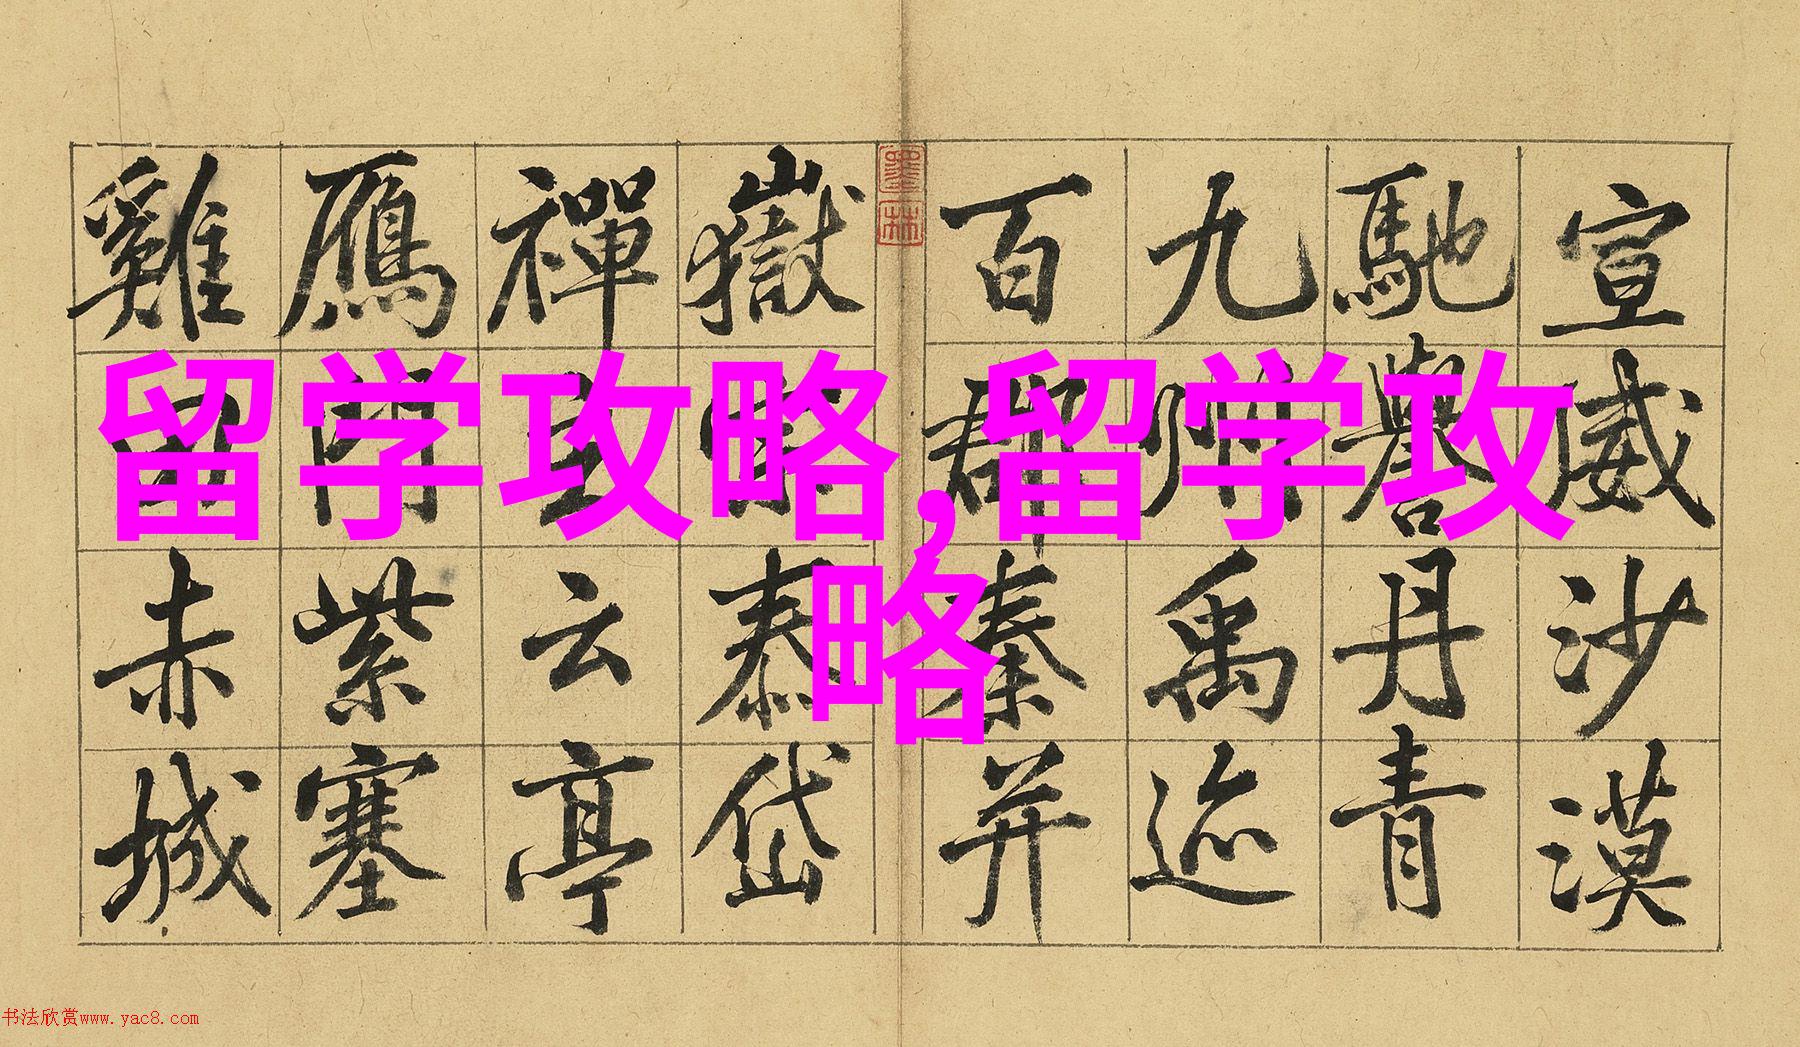 留学攻略,留学攻
略
宣威沙漠
馳譽丹青
九州禹迹
百郡秦并
墨林
嶽泰岱
禪主云亭
鴈門紫塞
雞田赤城
书法欣赏www.yac8.com